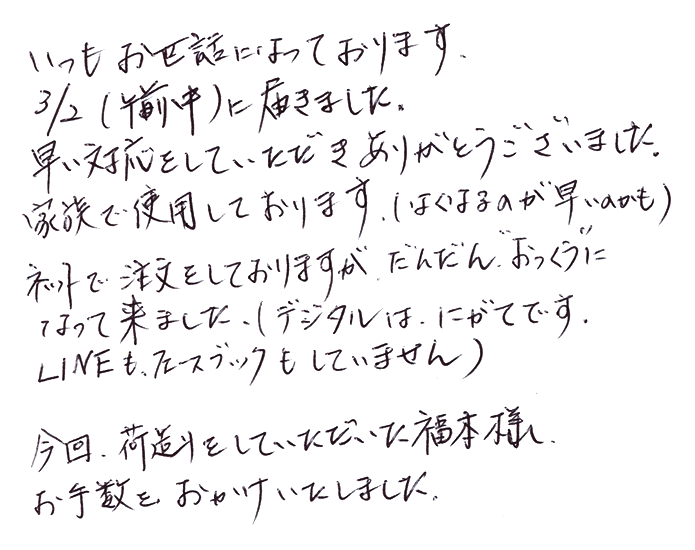 いつもお世話になっております.
3/2（午前中）に届きました。
早い対応をしていただきありがとうございました。
家族で使用しております.（なくなるのが早いのかも）
ネットで注文をしておりますが、だんだん、おっくうに
なって来ました、（デジタルは、にがてです.
LINEも、フェースブックもしていません）
今回、荷造りをしていただいた福本様、
お手数をおかけいたしました。